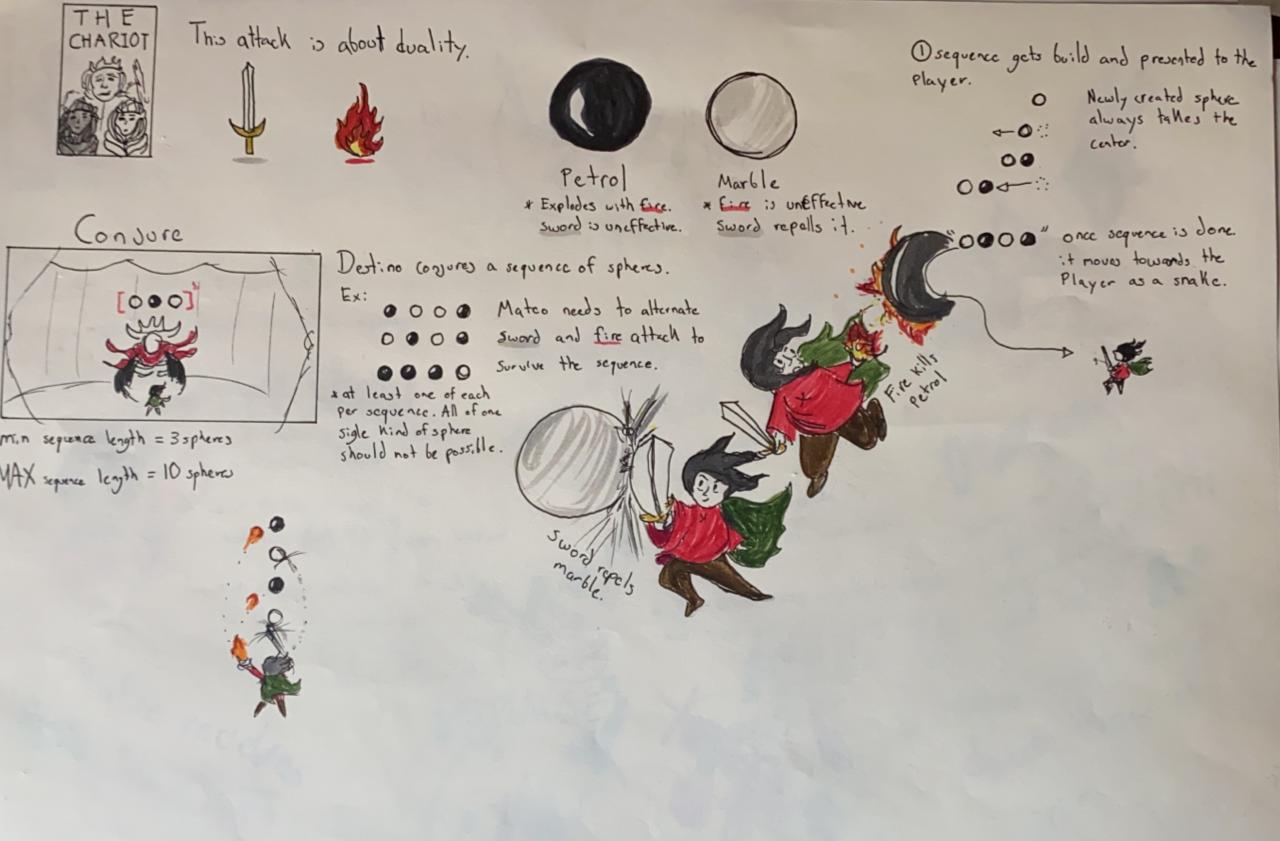 THE
CHARIOT
This attack is about duality.
Petrol
* Explodes with fire.
Sword is uneffective.
Marble
* fire is uneffective
Sword repells it.
① sequence gets build and presented to the
Player.
Newly created sphere
always takes the
center.
" " once sequence is done
it moves towards the
Player as a snake.
Conjure
[ ]
min sequence length = 3 spheres
MAX sequence length = 10 spheres
Destino conjures a sequence of spheres.
Ex:
Mateo needs to alternate
Sword and fire attack to
Survive the sequence.
* at least one of each
per sequence. All of one
sigle kind of sphere
should not be possible.
Fire kills
Petrol
Sword repels
marble.